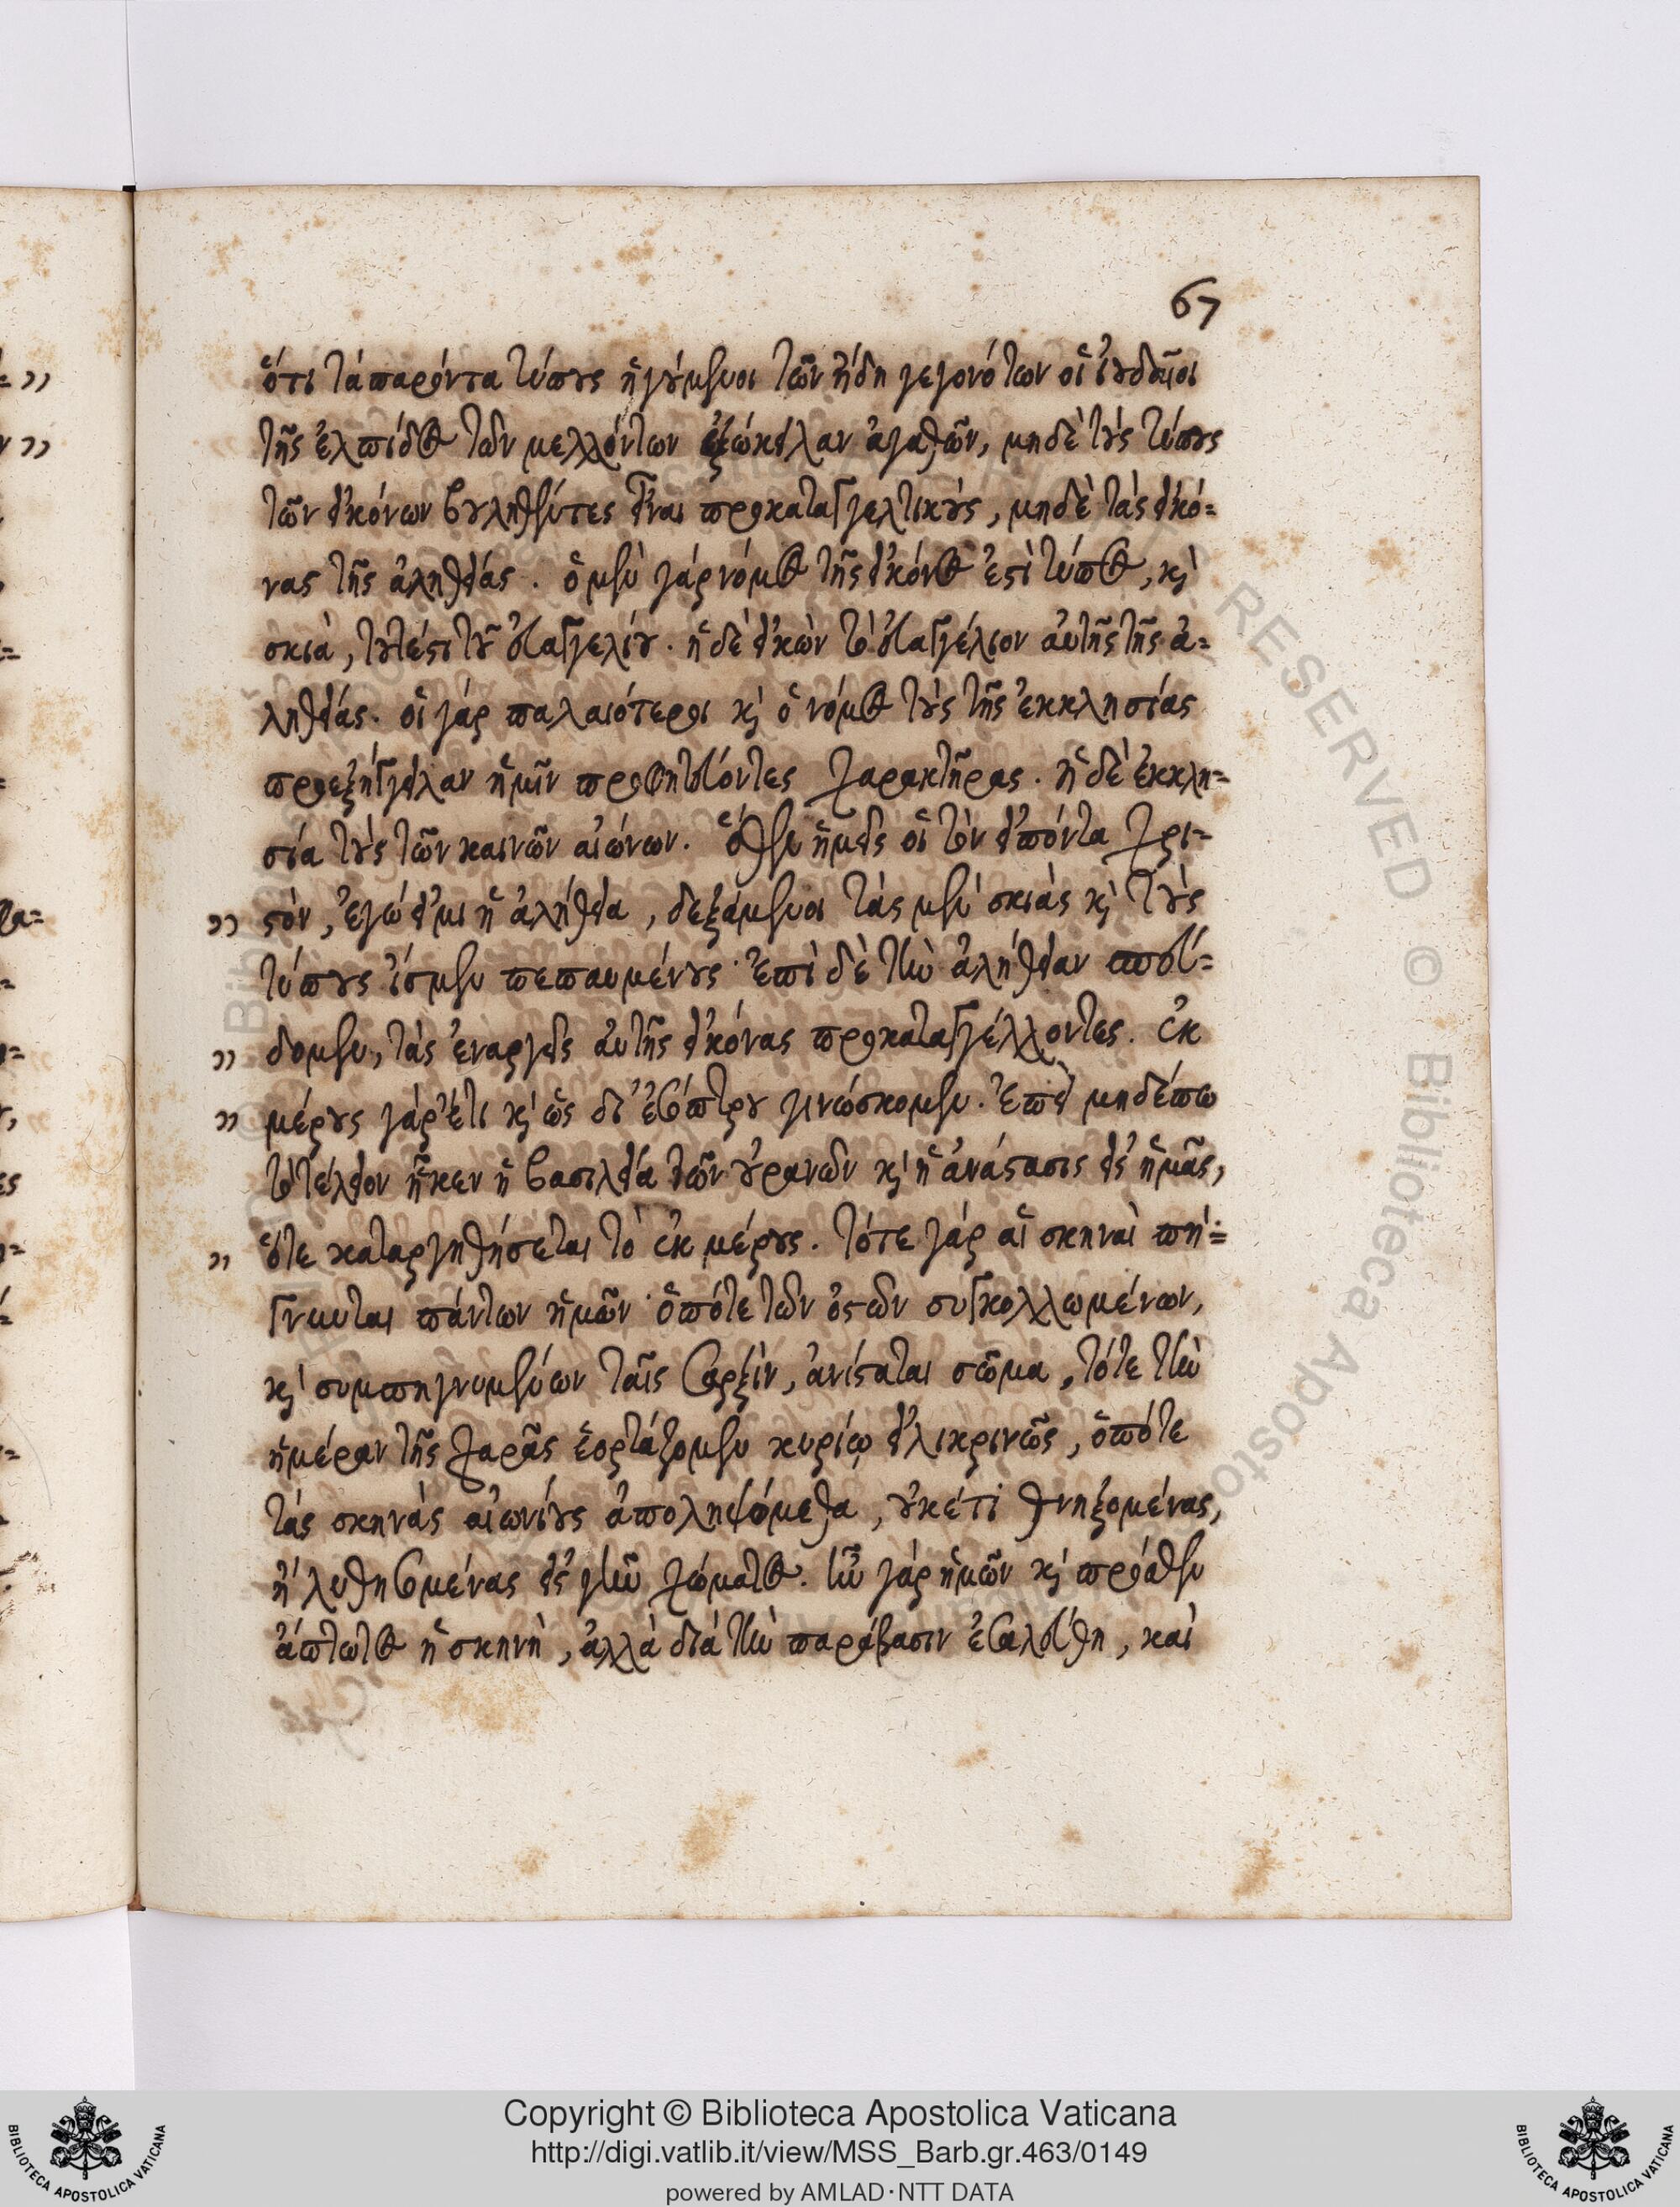 67
ὅτι τὰ παρόντα τύπους ἡγούμενοι τῶν ἤδη γεγονότων οἱ ἰουδαῖοι
τῆς ἐλπίδος τῶν μελλόντων ἐξώκειλαν ἀγαθῶν, μηδὲ τοὺς τύπους
τῶν εἰκόνων βουληθέντες εἶναι προκαταγγελτικούς, μηδὲ τὰς εἰκό=
νας τῆς ἀληθείας. ὁ μὲν γὰρ νόμος τῆς εἰκόνος ἐστὶ τύπος, κỳ
σκιὰ, τουτέστι τοῦ εὐαγγελίου. ἡ δὲ εἰκὼν τὸ εὐαγγέλιον αὐτῆς τῆς ἀ=
ληθείας. οἱ γὰρ παλαιότεροι κỳ ὁ νόμος τοὺς τῆς ἐκκλησίας
προεξήγγειλαν ἡμῖν προφητεύοντες χαρακτῆρας. ἡ δὲ ἐκκλη=
σία τοὺς τῶν καινῶν αἰώνων. ὅθεν ἡμεῖς οἱ τὸν εἰπόντα χρι=
" στὸν, ἐγώ εἰμι ἡ ἀλήθεια, δεξάμενοι τὰς μὲν σκιὰς κỳ τοὺς
τύπους ἴσμεν πεπαυμένους· ἐπὶ δὲ τὴν ἀλήθειαν σπεύ=
" δομεν, τὰς ἐναργεῖς αὐτῆς εἰκόνας προκαταγγέλλοντες. ἐκ
" μέρους γὰρ ἔτι κỳ ὡς δι' ἐσόπτρου γινώσκομεν. ἐπεὶ μηδέπω
τὸ τέλειον ἧκεν ἡ βασιλεία τῶν οὐρανῶν κỳ ἡ ἀνάστασις εἰς ἡμᾶς,
" ὅτε καταργηθήσεται τὸ ἐκ μέρους. τότε γὰρ αἱ σκηναὶ πή=
γνυνται πάντων ἡμῶν· ὁπότε τῶν ὀστῶν συγκολλωμένων,
κỳ συμπηγνυμένων ταῖς σαρξὶν, ἀνίσταται σῶμα, τότε τὴν
ἡμέραν τῆς χαρᾶς ἑορτάζομεν κυρίῳ εἰλικρινῶς, ὁπότε
τὰς σκηνὰς αἰωνίους ἀποληψόμεθα, οὐκέτι θνηξομένας,
ἢ λυθησομένας εἰς γῆν χώματος. ἦν γὰρ ἡμῶν κỳ πρόσθεν
ἄπτωτος ἡ σκηνὴ, ἀλλὰ διὰ τὴν παράβασιν ἐσαλεύθη, καὶ
Copyright © Biblioteca Apostolica Vaticana
http://digi.vatlib.it/view/MSS_Barb.gr.463/0149
powered by AMLAD·NTT DATA
BIBLIOTECA APOSTOLICA VATICANA
BIBLIOTECA APOSTOLICA VATICANA